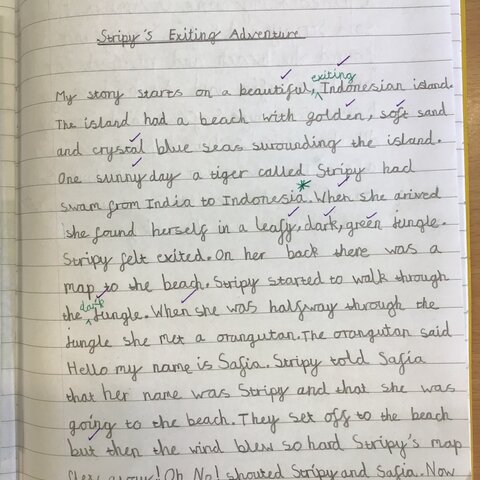 Stripy's Exiting Adventure
exiting
My story starts on a beautiful, Indonesian island.
The island had a beach with golden, soft sand
and crystal blue seas surounding the island.
One sunny day a tiger called Stripy had
swam from India to Indonesia. When she arived
she found herself in a leafy, dark, green jungle.
Stripy felt exited. On her back there was a
map to the beach. Stripy started to walk through
dark
the jungle. When she was halfway through the
jungle she met a orangutan. The orangutan said
Hello my name is Safia. Stripy told Safia
that her name was Stripy and that she was
going to the beach. They set off to the beach
but then the wind blew so hard Stripy's map
flew away! Oh No! shouted Stripy and Safia. Now